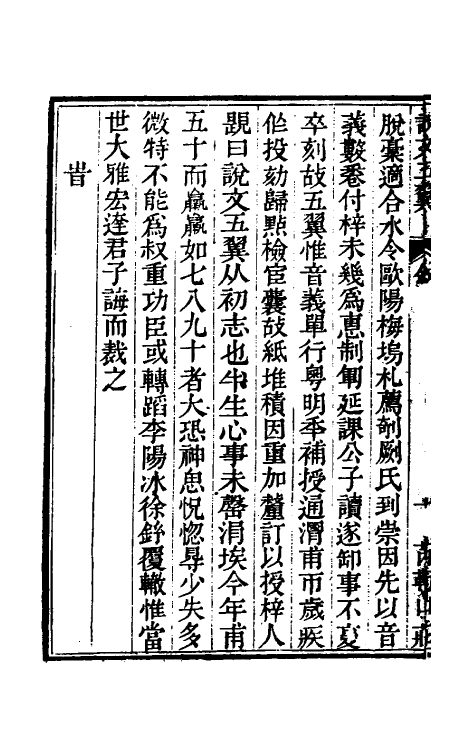 脫稾適合水令歐陽梅塢札薦剞劂氏到崇因先以音
義數卷付梓未幾爲惠制軍延課公子讀遂卸事不敻
卒刻故五翼惟音義單行粤明秊補授通渭甫帀歲疾
作投劾歸點檢宦囊故紙堆積因重加釐訂以授梓人
題曰說文五翼从初志也半生心事未罄涓埃今年甫
五十而羸羸如七八九十者大恐神悤怳惚㝵少失多
微特不能爲叔重功臣或轉蹈李陽冰徐鉉覆轍惟當
世大雅宏達君子誨而裁之
旹